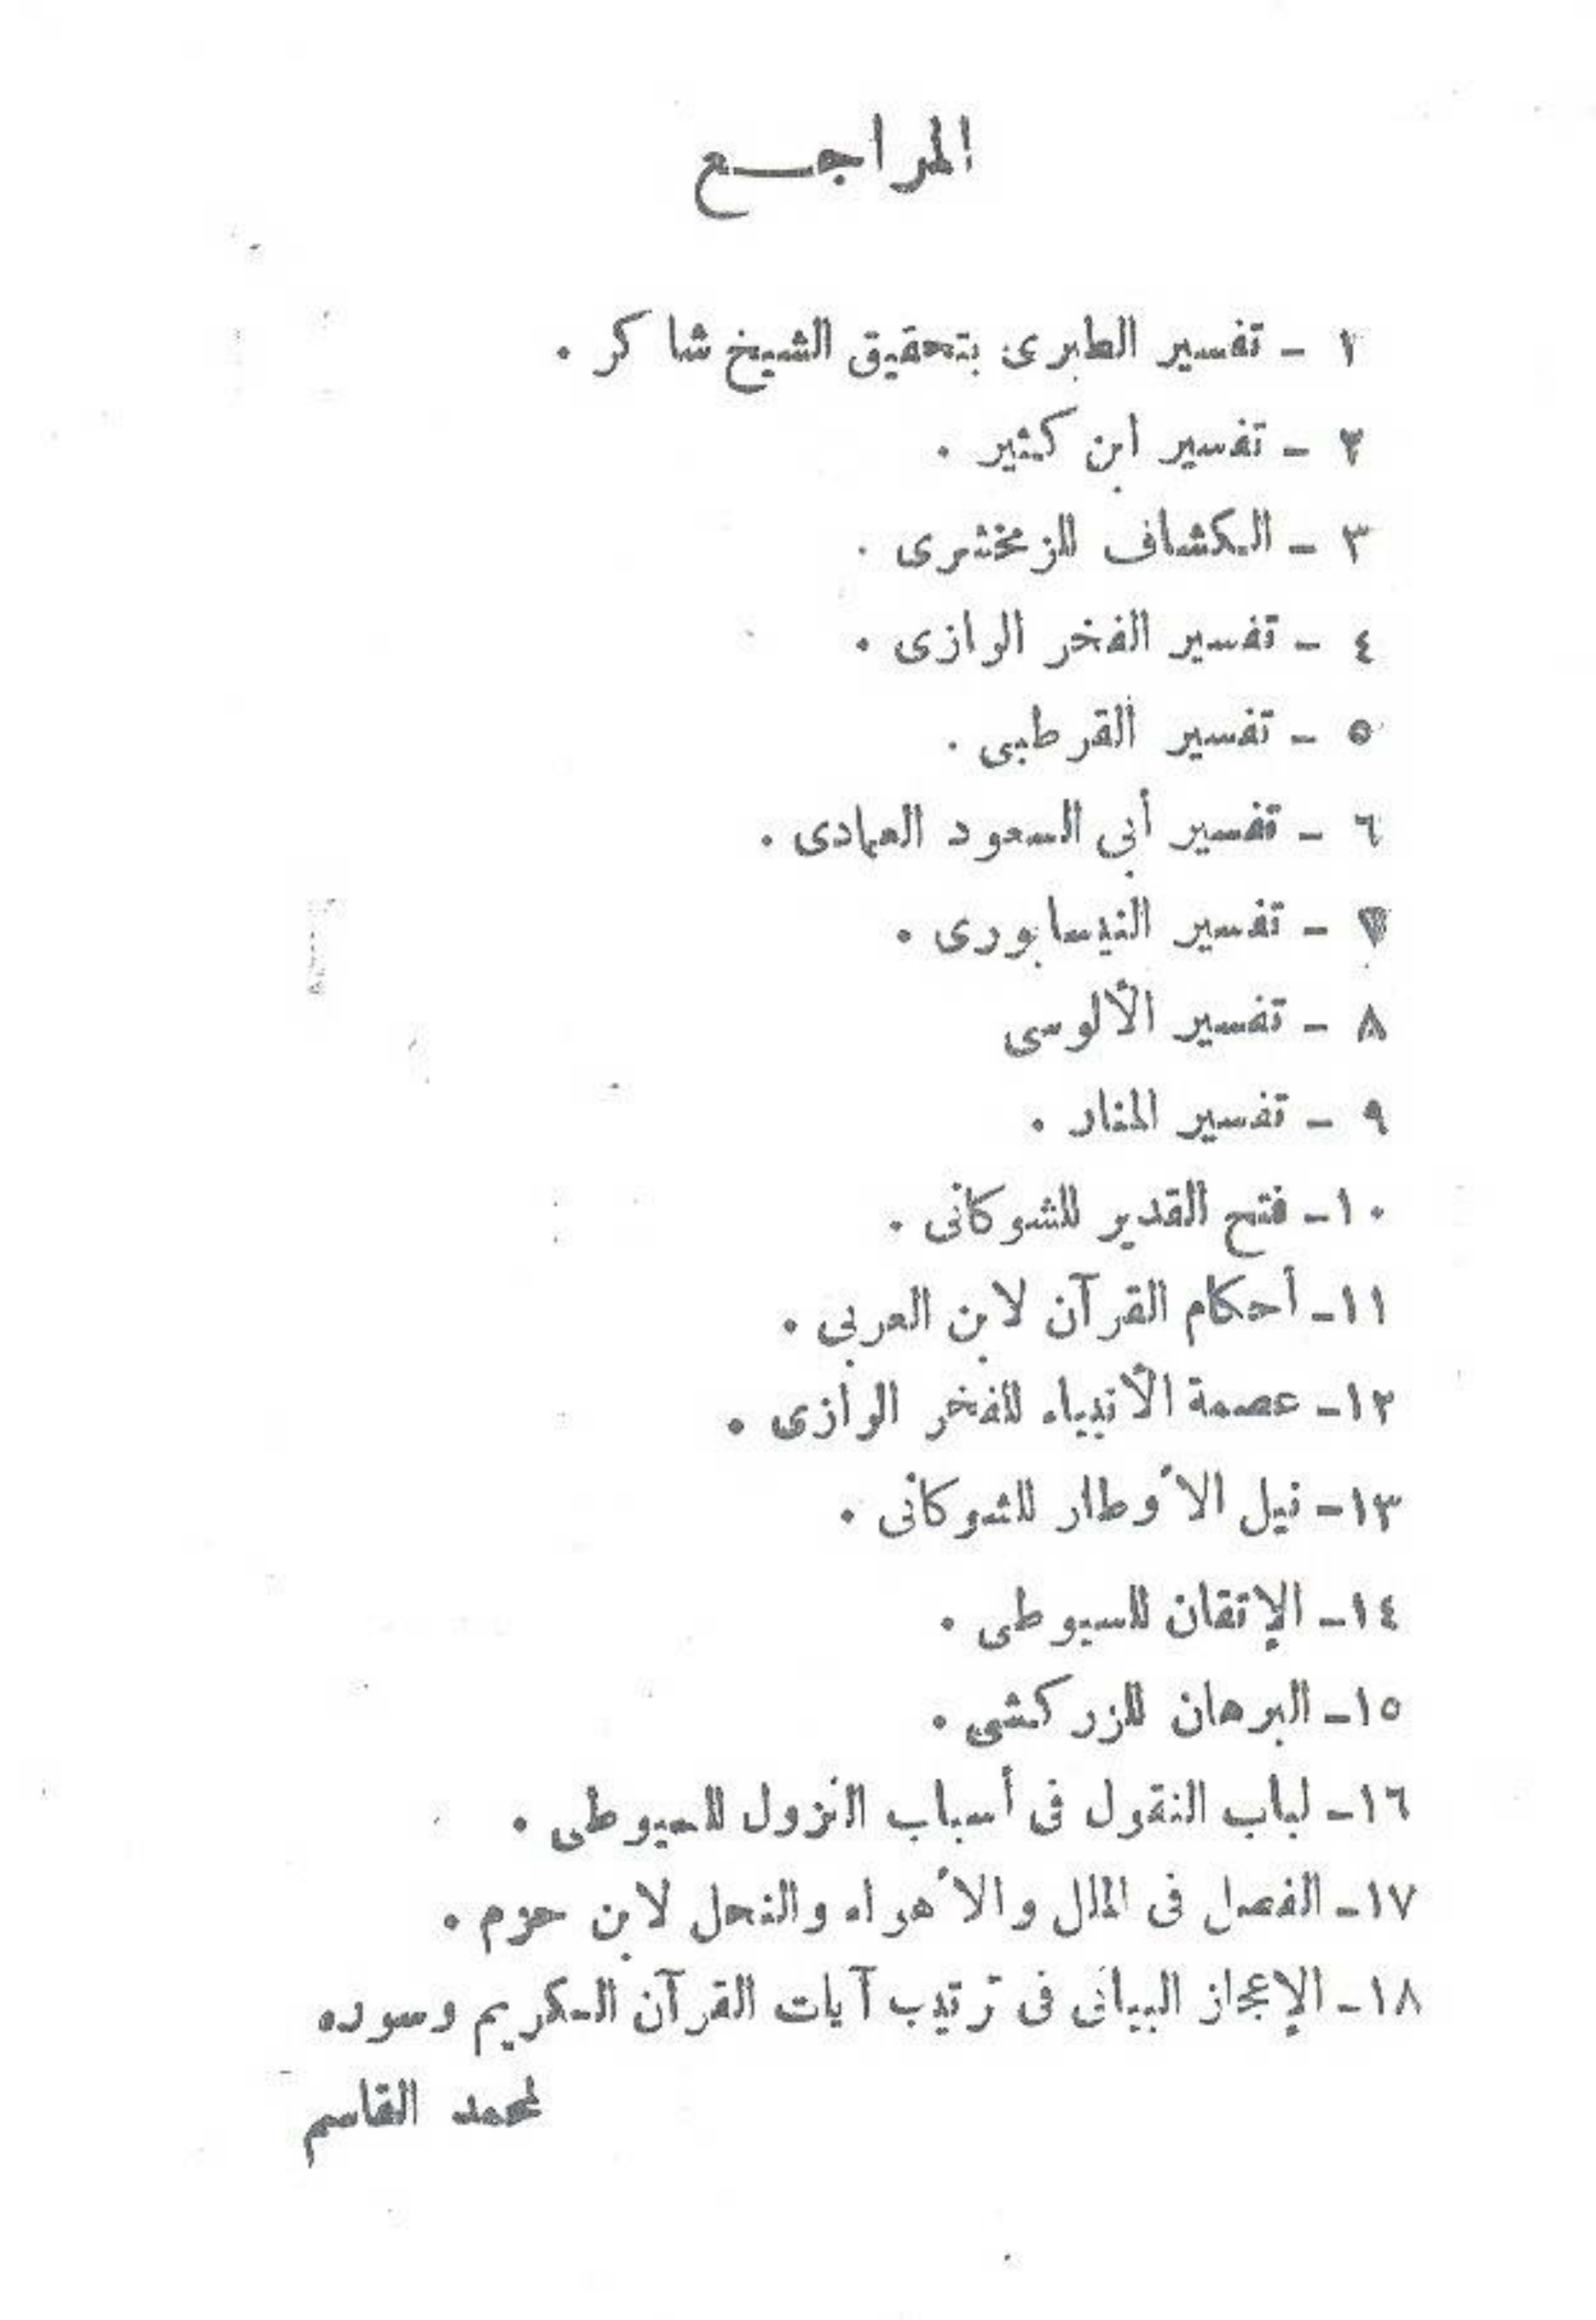 المراجع
١ - تفسير الطبرى بتحقيق الشيخ شاكر .
٢ - تفسير ابن كثير .
٣ - الكشاف للزمخشرى .
٤ - تفسير الفخر الرازى .
٥ - تفسير القرطبى .
٦ - تفسير أبى السعود العمادى .
٧ - تفسير النيسابورى .
٨ - تفسير الألوسى
٩ - تفسير المنار .
١٠- فتح القدير للشوكانى .
١١- أحكام القرآن لابن العربى .
١٢- عصمة الأنبياء للفخر الرازى .
١٣- نيل الأوطار للشوكانى .
١٤- الإتقان للسيوطى .
١٥- البرهان للزركشى .
١٦- لباب النقول فى أسباب النزول للسيوطى .
١٧- الفصل فى الملل والأهواء والنحل لابن حزم .
١٨- الإعجاز البيانى فى ترتيب آيات القرآن الكريم وسوره
لمحمد القاسم